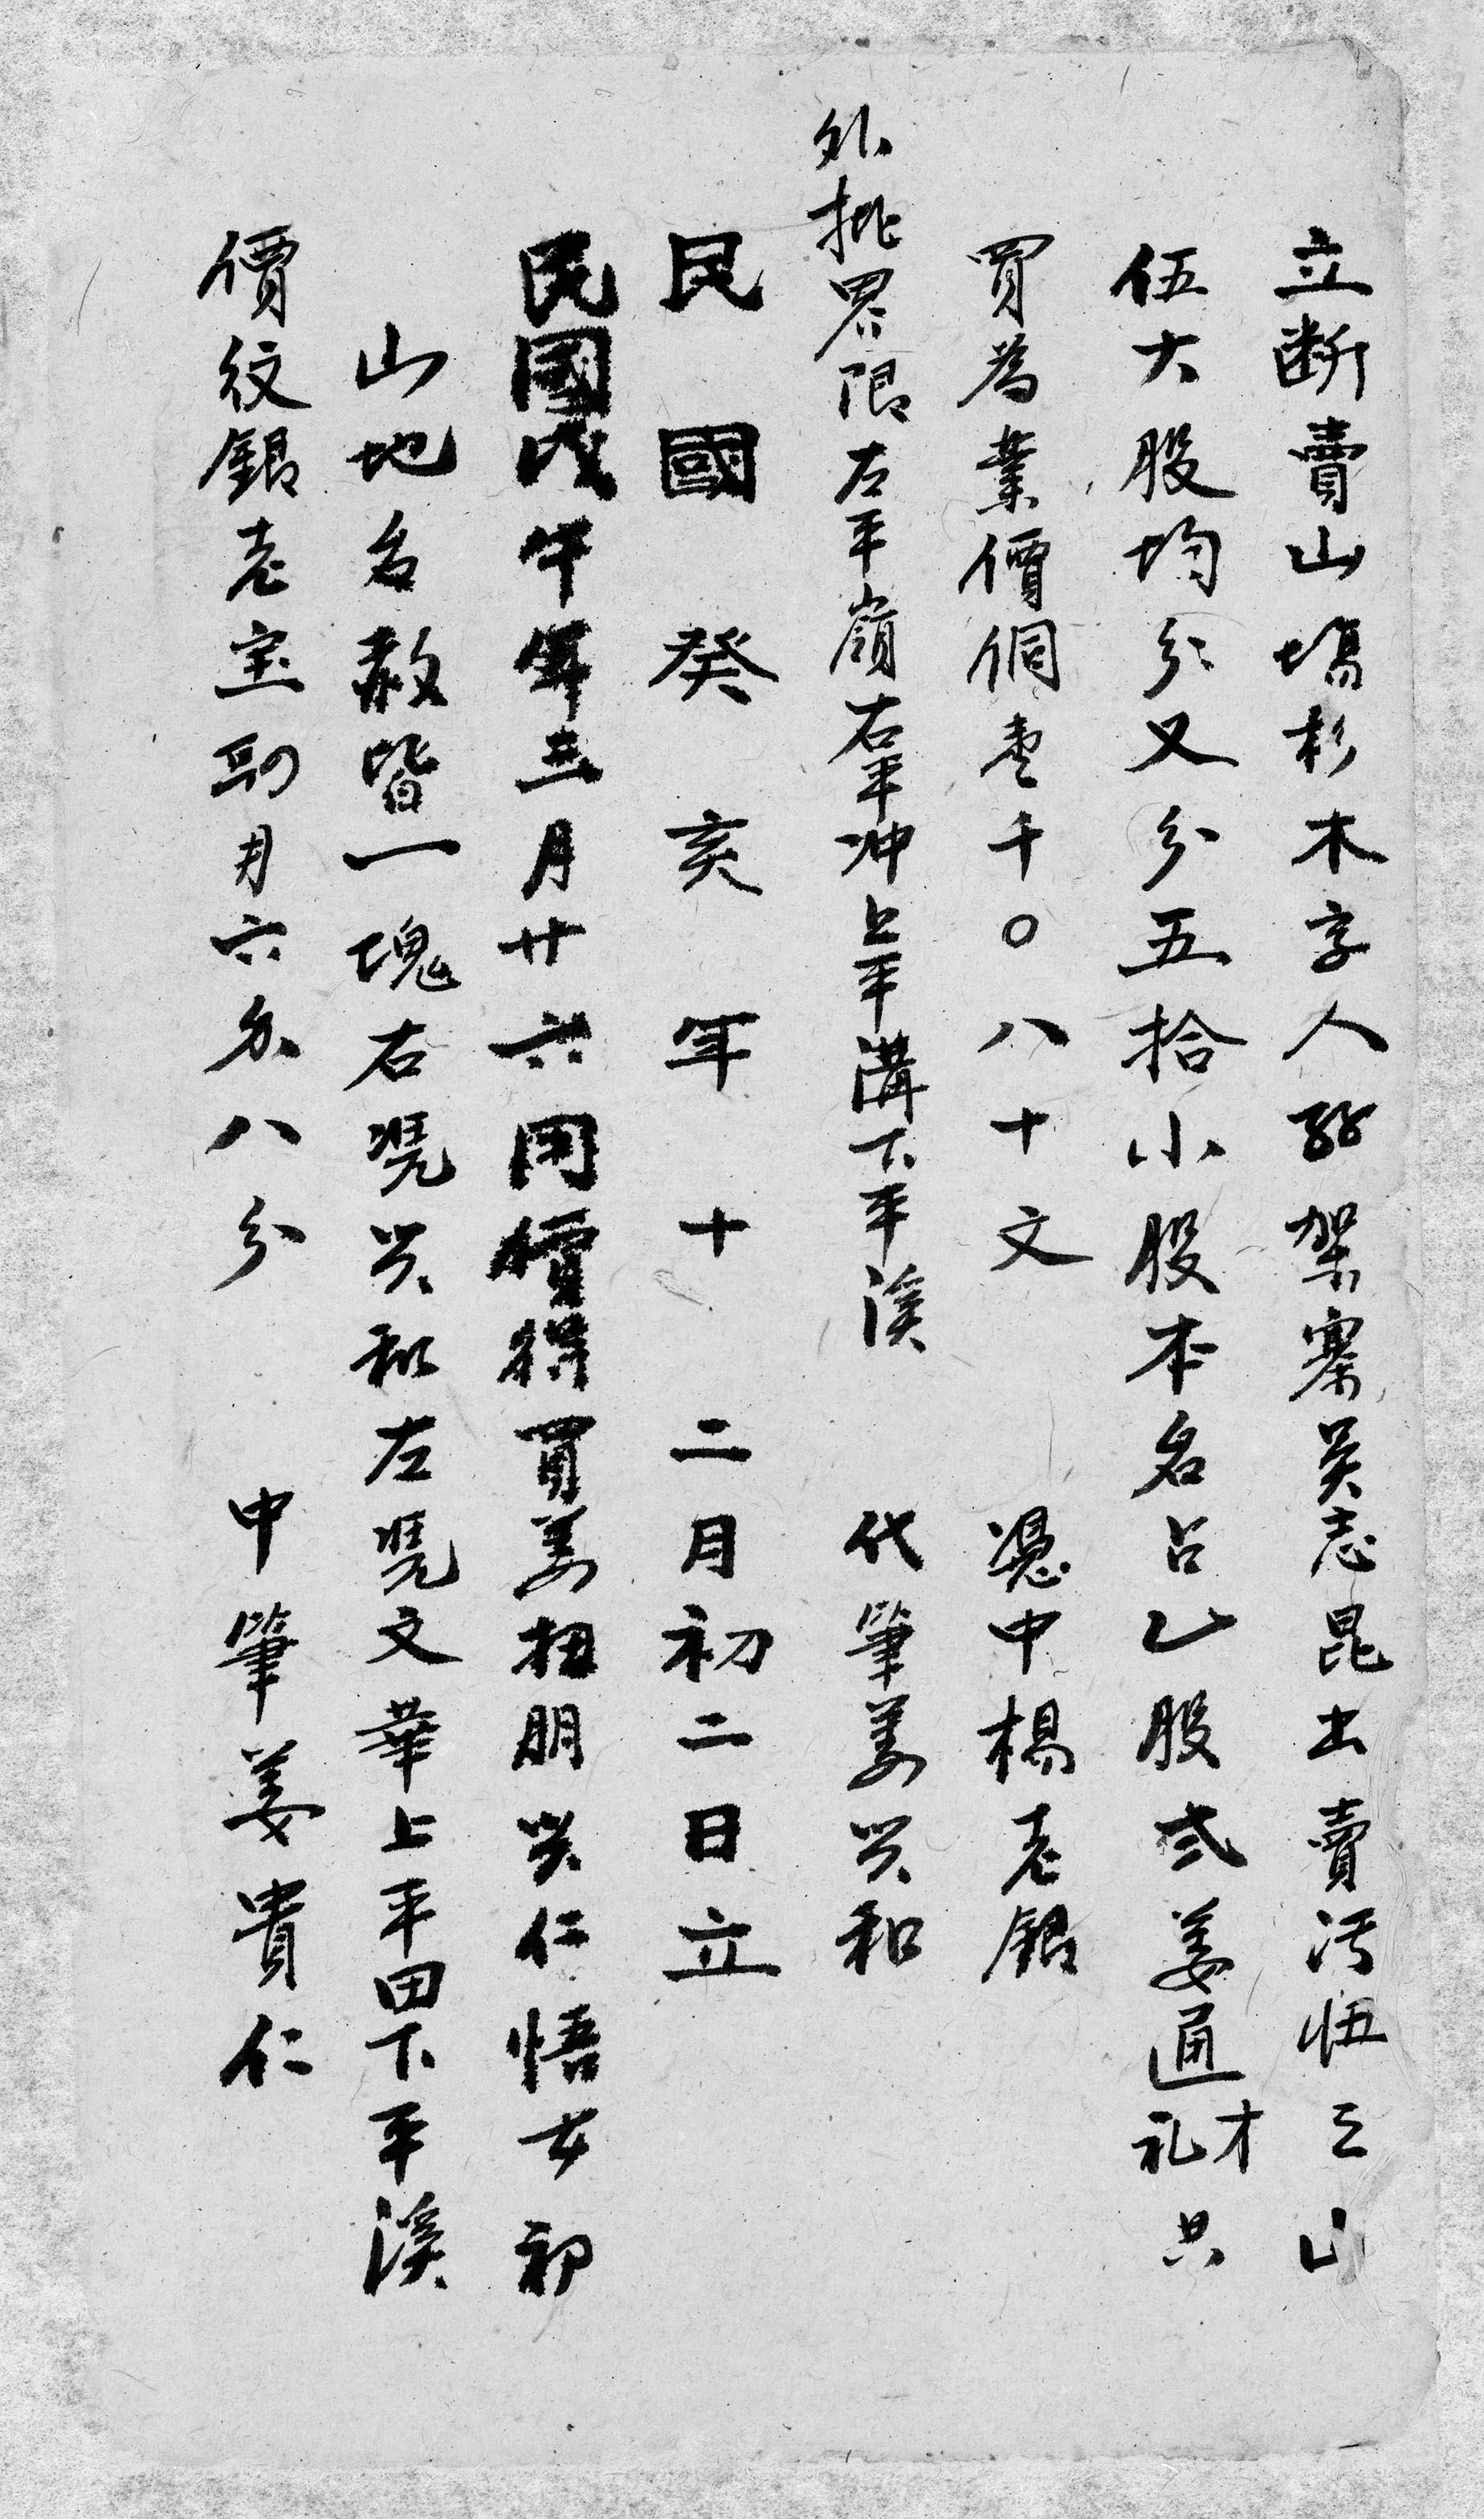 立断賣山塲杉木字人 架寨吴志昆出賣污㐳之山
伍大股均分又分五拾小股本名占乙股弍姜通才礼共
買為業價銅壹千〇八十文 憑中楊老銀
外批界限左平嶺右平冲上平溝下平溪 代筆姜兴和
民國癸亥年十二月初二日立
民國戊午年三月廿六用價得買姜 朋兴仁悟女初
山地名 皆一塊右凭兴和左凭文華上平田下平溪
價紋銀老宝 六 八分 中筆姜貴仁